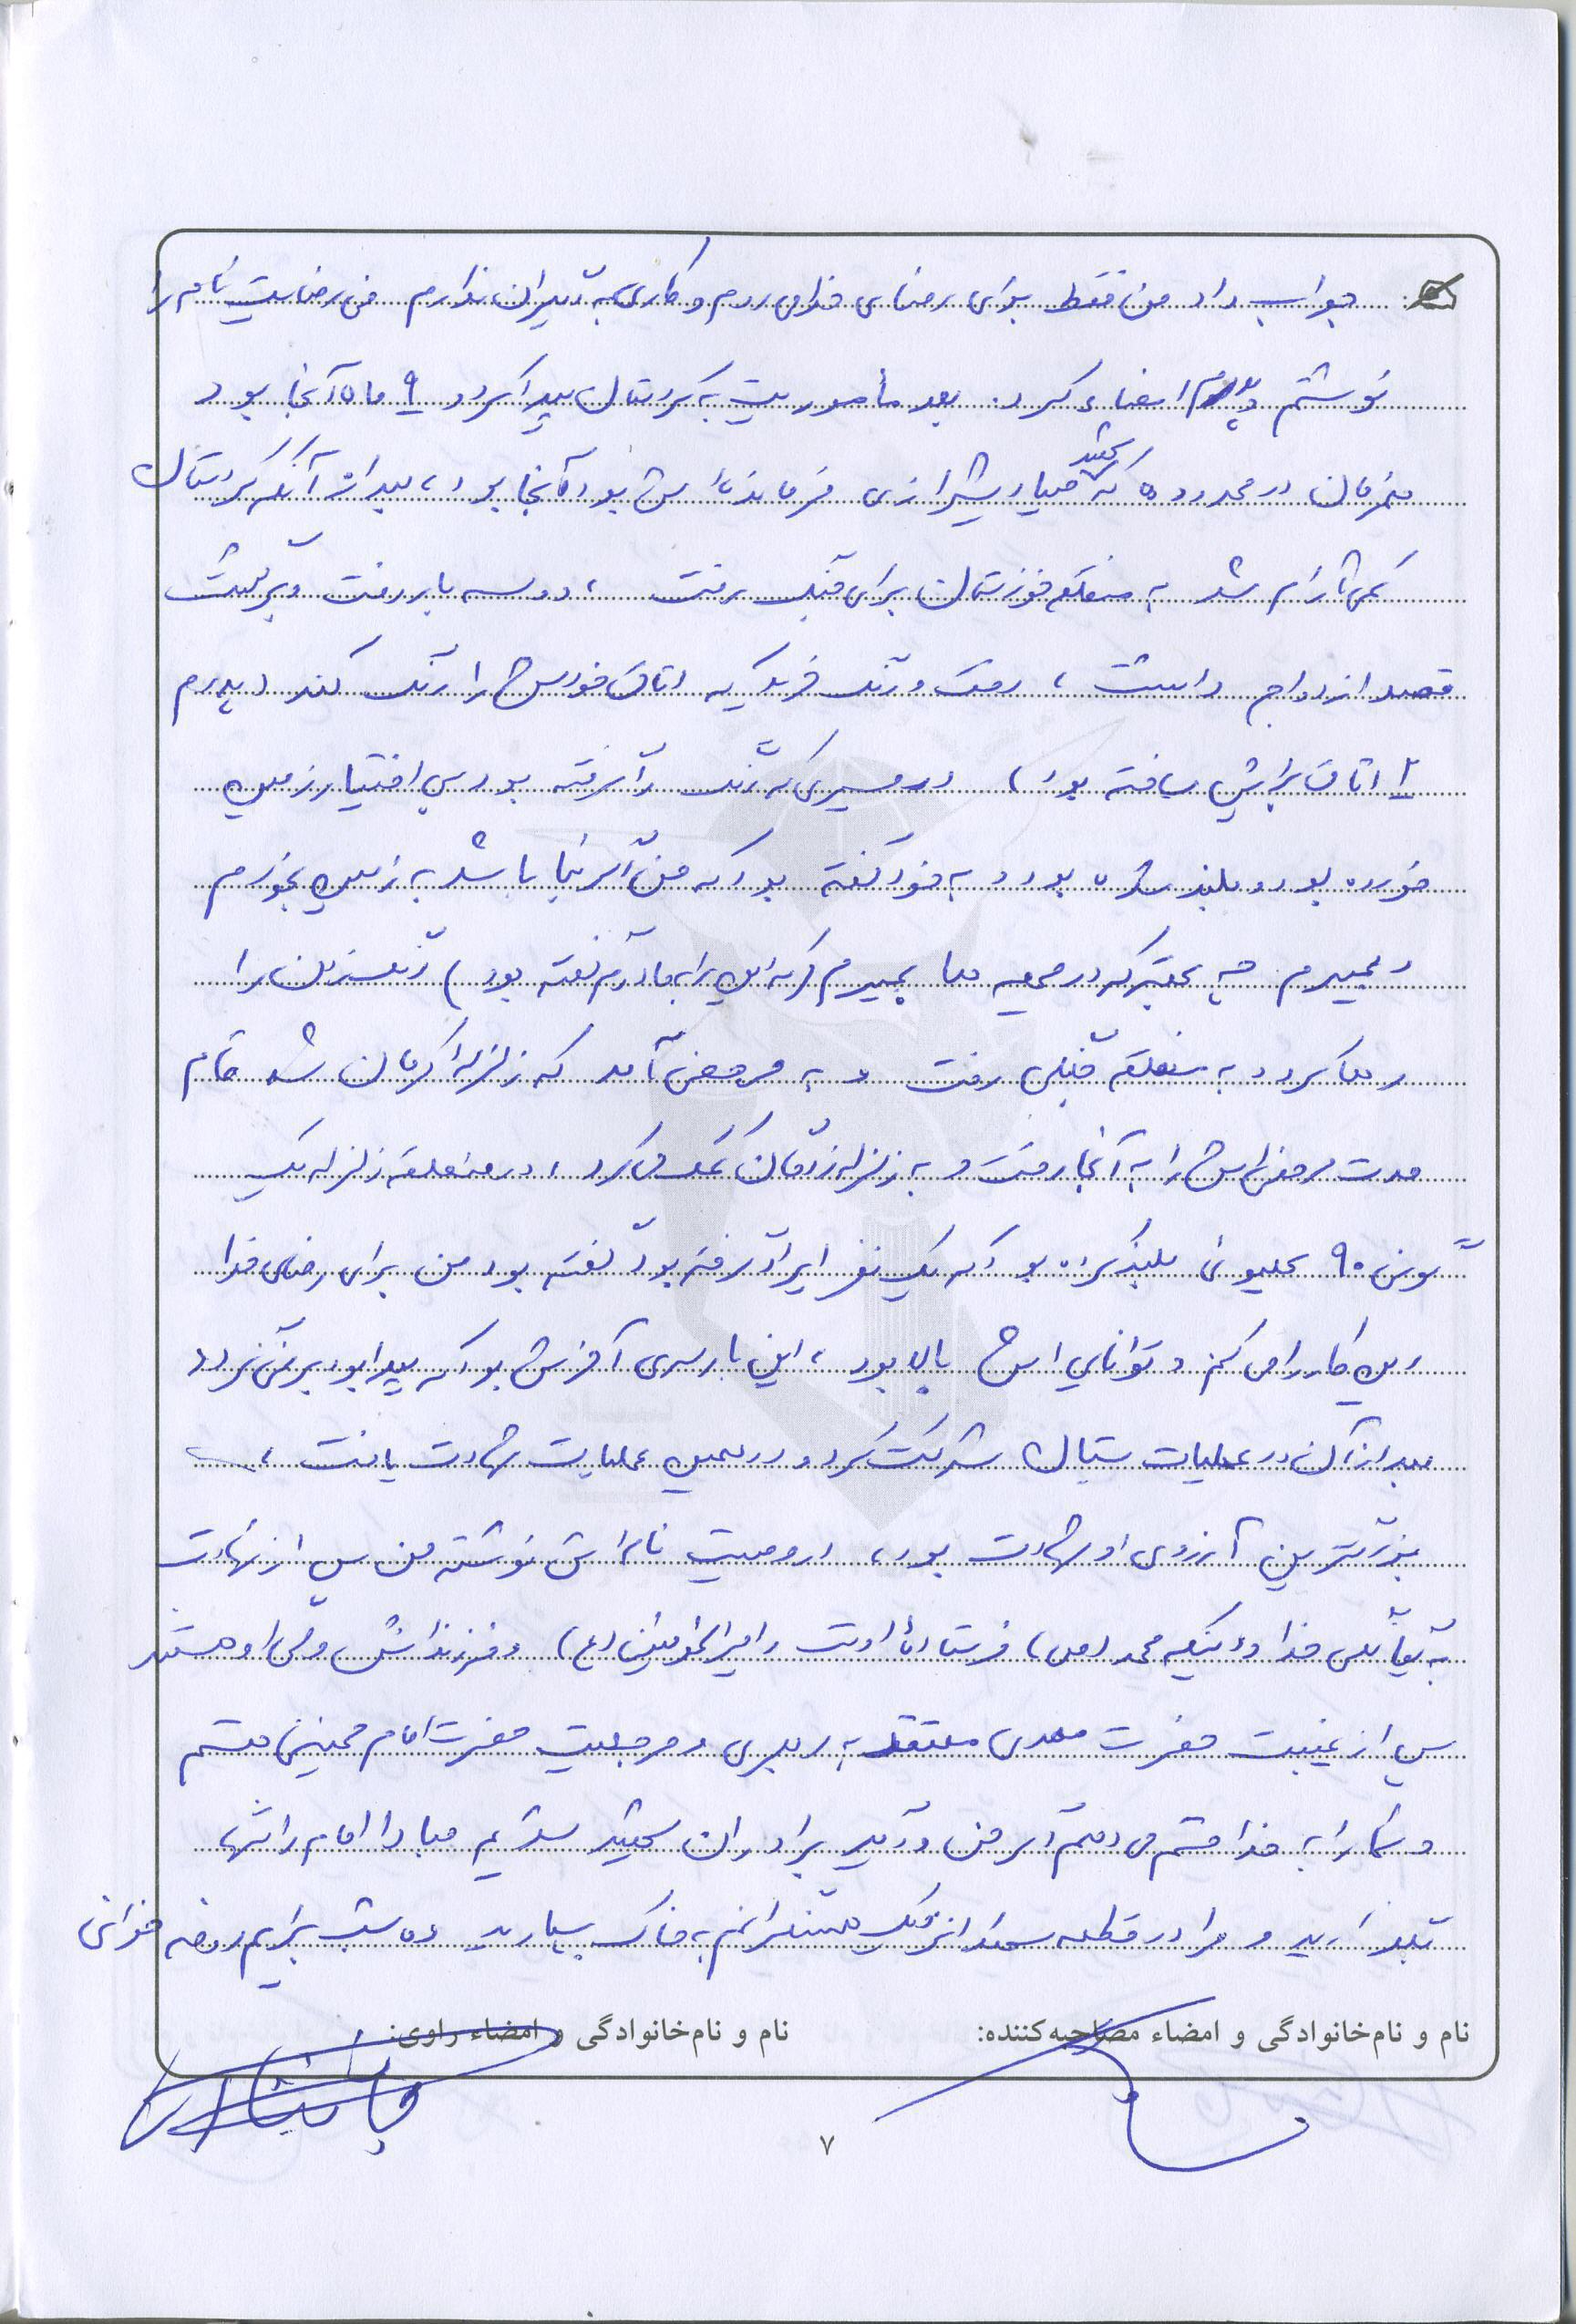 جواب داد من فقط برای رضای خدا می روم و کاری به دیگران ندارم من رضایت نامه را
نوشتم و پدرم امضاء کرد. بعد مأموریت به کردستان پیدا کرد و ۹ ماه آنجا بود
همزمان در محدوده که شهید صیاد شیرازی فرمانده اش بود آنجا بود، بعد از آنکه کردستان
کمی آرام شد به منطقه خوزستان برای جنگ رفت، دو سه بار رفت و برگشت
قصد ازدواج داشت، رفت و رنگ خرید که اتاق خودش را رنگ کند (پدرم
۲ اتاق برایش ساخته بود) در مسیری که رنگ را گرفته بود بی اختیار زمین
خورده بود و بلند شده بود و به خود گفته بود که من اگر بنا باشد به زمین بخورم
و بمیرم چه بهتر که در جبهه ها بمیرم (که این را به مادرم گفته بود) رنگ زدن را
رها کرد و به منطقه جنگی رفت و به مرخصی آمد که زلزله کرمان شد تمام
مدت مرخصی اش را به آنجا رفت و به زلزله زدگان کمک می کرد، در منطقه زلزله یک
گونی ۹۰ کیلویی بلند کرده بود که یک نفر ایراد گرفته بود گفته بود من برای رضای خدا
این کار را می کنم و توانایی اش بالا بود، این بار سری آخرش بود که پیدا بود برنمی گردد
بعد از آن در عملیات بستان شرکت کرد و در همین عملیات شهادت یافت،
بزرگترین آرزوی او شهادت بود، در وصیت نامه اش نوشته من پس از شهادت
به یگانگی خدا و اینکه محمد (ص) فرستاده اوست و امیرالمومنین (ع) و فرزندانش ولی او هستند
پس از غیبت حضرت مهدی معتقد به رهبری و مرجعیت حضرت امام خمینی هستم
و شما را به خدا قسم می دهم اگر من و دیگر برادران شهید شدیم مبادا امام را تنها
بگذارید و مرا در قطعه شهدا نزدیک همسنگرانم به خاک بسپارید ده شب برایم روضه خوانی
نام و نام‌خانوادگی و امضاء مصاحبه‌کننده:
نام و نام‌خانوادگی و امضاء راوی:
۷